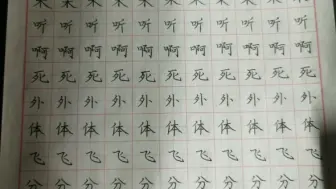 听 听 听 听 听 听 听 听 听 听 听
啊 啊 啊 啊 啊 啊 啊 啊 啊 啊 啊
死 死 死 死 死 死 死 死 死 死 死
外 外 外 外 外 外 外 外 外 外 外
体 体 体 体 体 体 体 体 体 体 体
飞 飞 飞 飞 飞 飞 飞 飞 飞 飞 飞
分 分 分 分 分 分 分 分 分 分 分